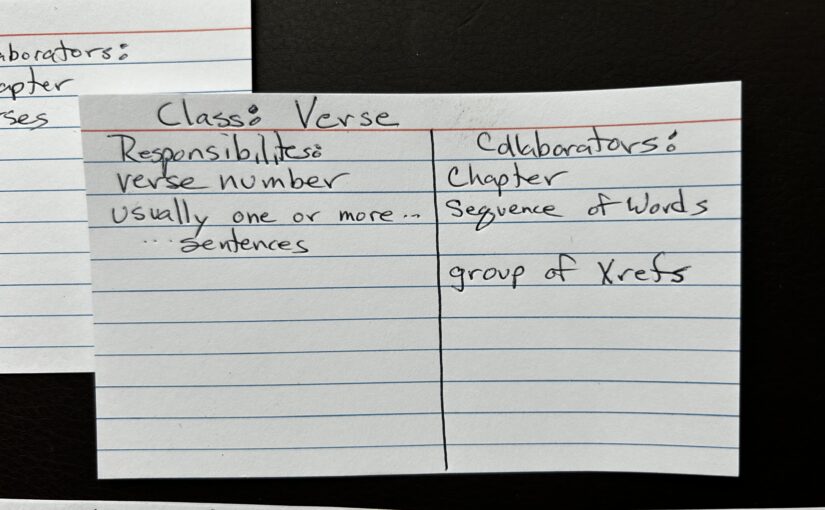 aborators:
apter
ses
Class: Verse
Responsibilites:
verse number
usually one or more...
... sentences
Collaborators:
Chapter
Sequence of Words
group of Xrefs